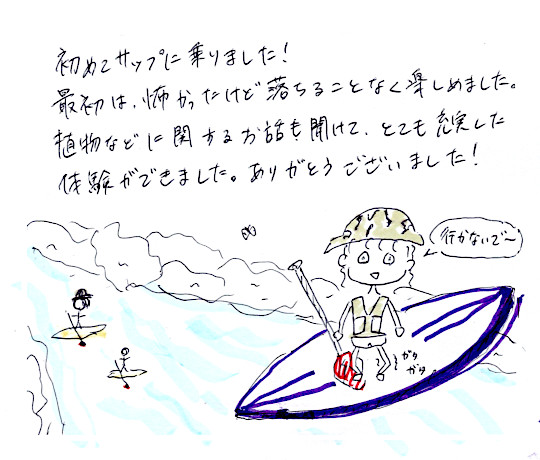 初めてサップに乗りました!
最初は、怖かったけど落ちることなく楽しめました。
植物などに関するお話も聞けて、とても充実した
体験ができました。ありがとうございました!
行かないで〜
ガタ
ガタ